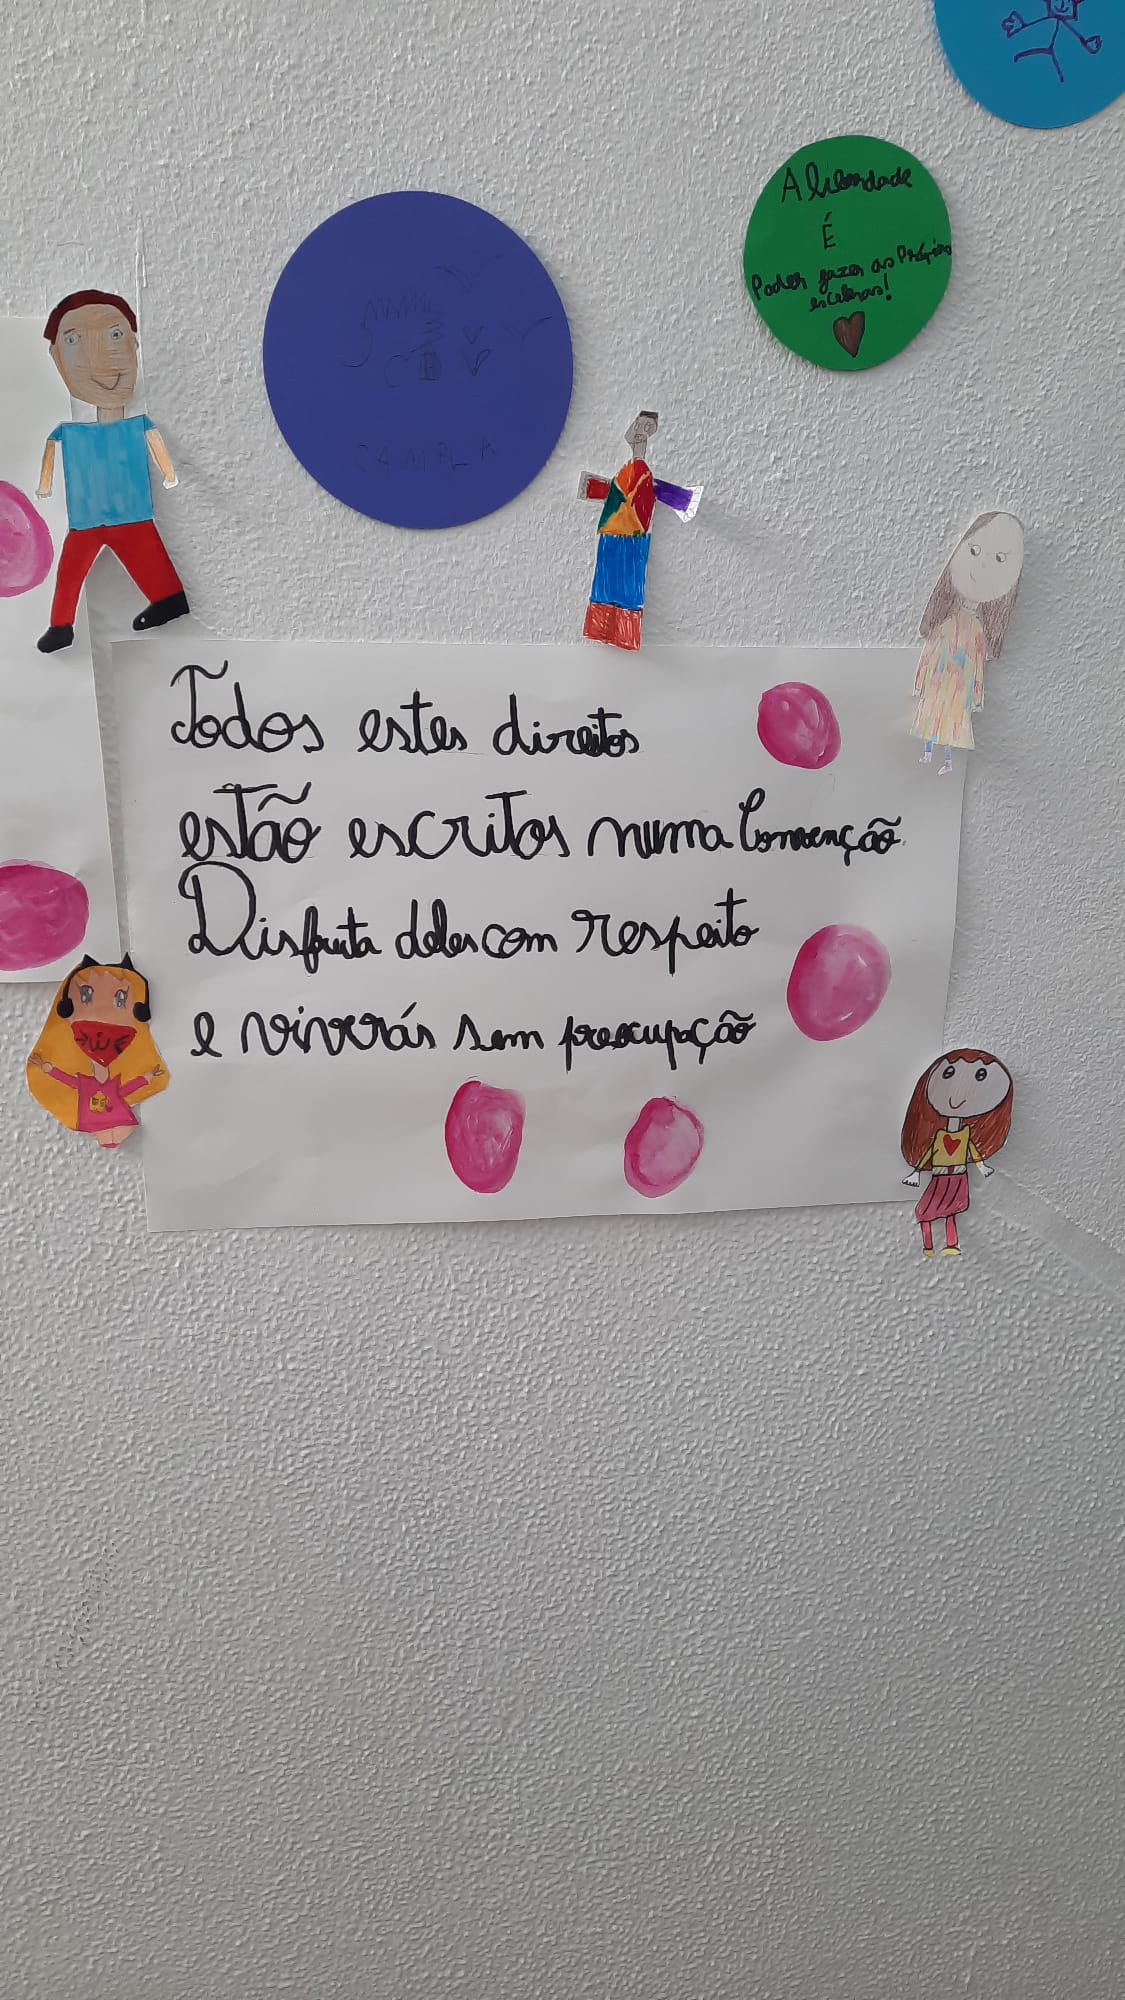 A liberdade
É
Poder fazer as Própias
escolhas!
Todos estes direitos
estão escritos numa Convenção.
Disfruta deles com respeito
e viverás sem preocupação